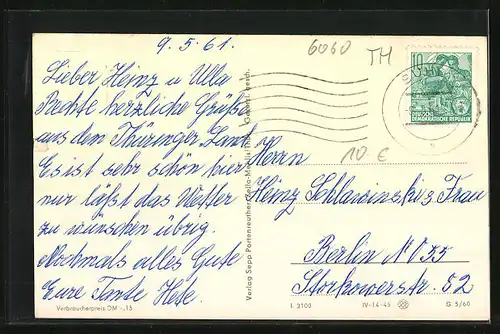 9.5.61.
Lieber Heinz u Ulla
Rechte herzliche Grüße
aus den Thüringer Land.
Es ist sehr schön hier
nur läßt das Wetter
zu wünschen übrig.
Nochmals alles Gute
Eure Tante Hese.
Verbraucherpreis DM -.15
Verlag Sepp Partenreuther
6060
TH
10
DEUTSCHE
DEMOKRATISCHE REPUBLIK
10 €
Herrn
Heinz Schlawinski u Frau
Berlin NO 55
Storkowerstr. 52
I 2100 IV-14-45 G 5/60